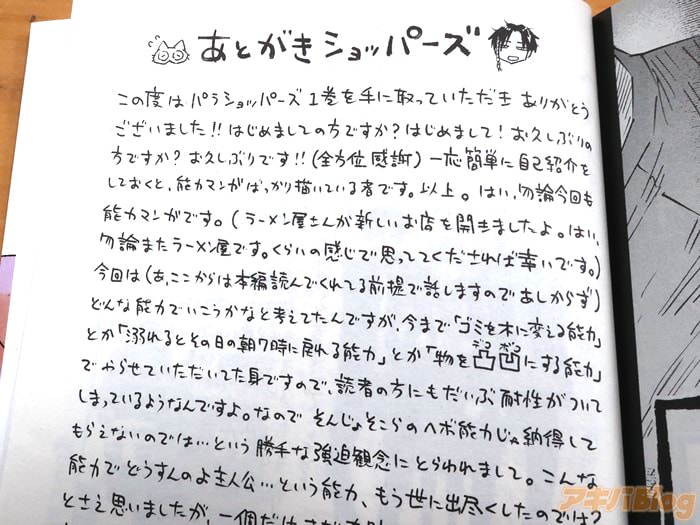 あとがきショッパーズ
この度は パラショッパーズ 1巻を手に取っていただき ありがとう
ございました!! はじめましての方ですか? はじめまして! お久しぶりの
方ですか? お久しぶりです!! (全方位感謝) 一応簡単に自己紹介を
しておくと、能力マンガばっかり描いている者です。以上。 はい、勿論今回も
能力マンガです。(ラーメン屋さんが新しいお店を開きましたよ。はい、
勿論またラーメン屋です。くらいの感じで思っててくだされば幸いです。)
今回は(あ、ここからは本編読んでくれてる前提で話しますのであしからず)
どんな能力でいこうかなと考えてたんですが、今まで「ゴミを木に変える能力」
とか「溺れるとその日の朝7時に戻れる能力」とか「物を凸凹にする能力」
デコ ボコ
でやらせていただいてた身ですので、読者の方にもだいぶ耐性がついて
しまっているようなんですよ。なので そんじょそこらのヘボ能力じゃ納得して
もらえないのでは…という 勝手な強迫観念にとらわれまして。こんな
能力でどうすんのよ主人公…という能力、もう世に出尽くしたのでは?
とさえ思いましたが、一個だけ
アキバBlog